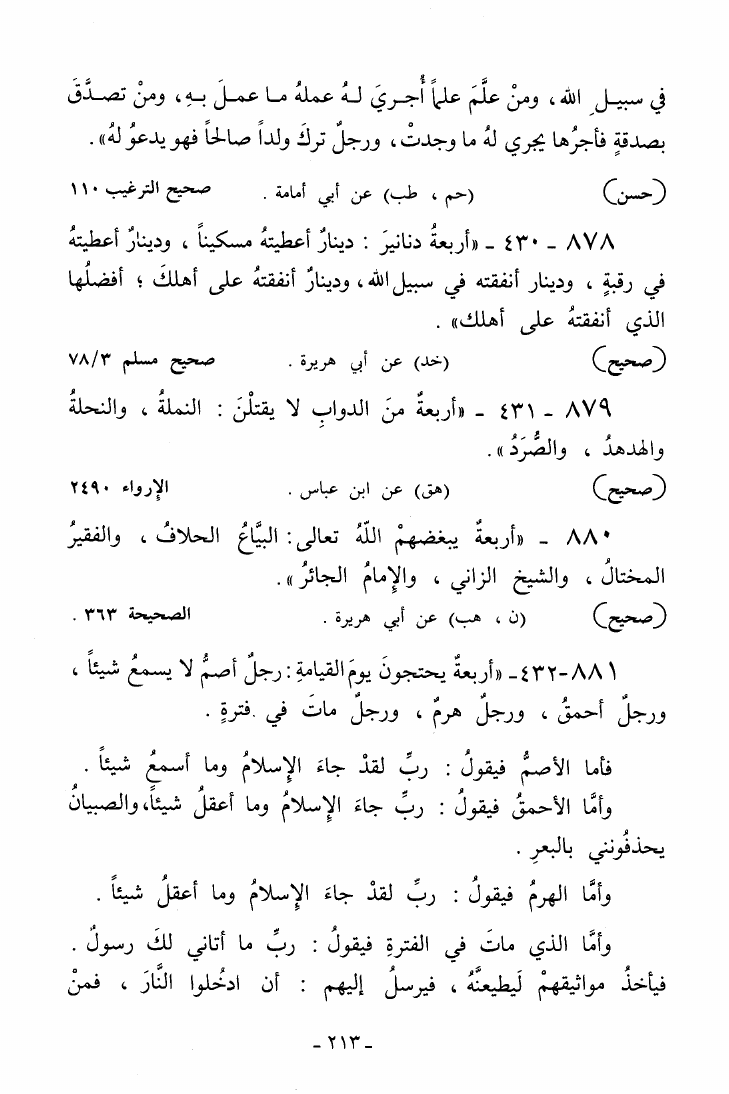 في سبيـل الله ، ومنْ علَّمَ علماً أُجـريَ لـهُ عملهُ مـا عمـلَ بـهِ ، ومنْ تصـدَّقَ
بصدقةٍ فأجرُها يجري لهُ ما وجدتْ ، ورجلٌ تركَ ولداً صالحاً فهو يدعوُ لهُ» .
(حسن) (حم ، طب) عن أبي أمامة . صحيح الترغيب ١١٠
٨٧٨ - ٤٣٠ - «أربعةُ دنانيرَ : دينارٌ أعطيتهُ مسكيناً ، ودينارٌ أعطيتهُ
في رقبةٍ ، ودينار أنفقته في سبيل الله ، ودينارٌ أنفقتهُ على أهلكَ ؛ أفضلُها
الذي أنفقتهُ على أهلك» .
(صحيح) (خد) عن أبي هريرة . صحيح مسلم ٧٨/٣
٨٧٩ - ٤٣١ - «أربعةٌ منَ الدوابِ لا يقتلْنَ : النملةُ ، والنحلةُ
والهدهدُ ، والصُّرَدُ» .
(صحيح) (هق) عن ابن عباس . الإرواء ٢٤٩٠
٨٨٠ - «أربعةٌ يبغضهمْ اللّهُ تعالى : البيَّاعُ الحلافُ ، والفقيرُ
المختالُ ، والشيخ الزاني ، والإمامُ الجائرُ» .
(صحيح) (ن ، هب) عن أبي هريرة . الصحيحة ٣٦٣ .
٨٨١-٤٣٢- «أربعةٌ يحتجونَ يومَ القيامةِ : رجلٌ أصمُّ لا يسمعُ شيئاً ،
ورجلٌ أحمقُ ، ورجلٌ هرمٌ ، ورجلٌ ماتَ في فترةٍ .
فأما الأصمُّ فيقولُ : ربِّ لقدْ جاءَ الإسلامُ وما أسمعُ شيئاً .
وأمَّا الأحمقُ فيقولُ : ربِّ جاءَ الإسلامُ وما أعقلُ شيئاً ، والصبيانُ
يحذفُونني بالبعرِ .
وأمَّا الهرمُ فيقولُ : ربِّ لقدْ جاءَ الإسلامُ وما أعقلُ شيئاً .
وأمَّا الذي ماتَ في الفترةِ فيقولُ : ربِّ ما أتاني لكَ رسولٌ .
فيأخذُ مواثيقهمْ لَيطيعنَّهُ ، فيرسلُ إليهم : أن ادخُلوا النَّارَ ، فمنْ
- ٢١٣ -